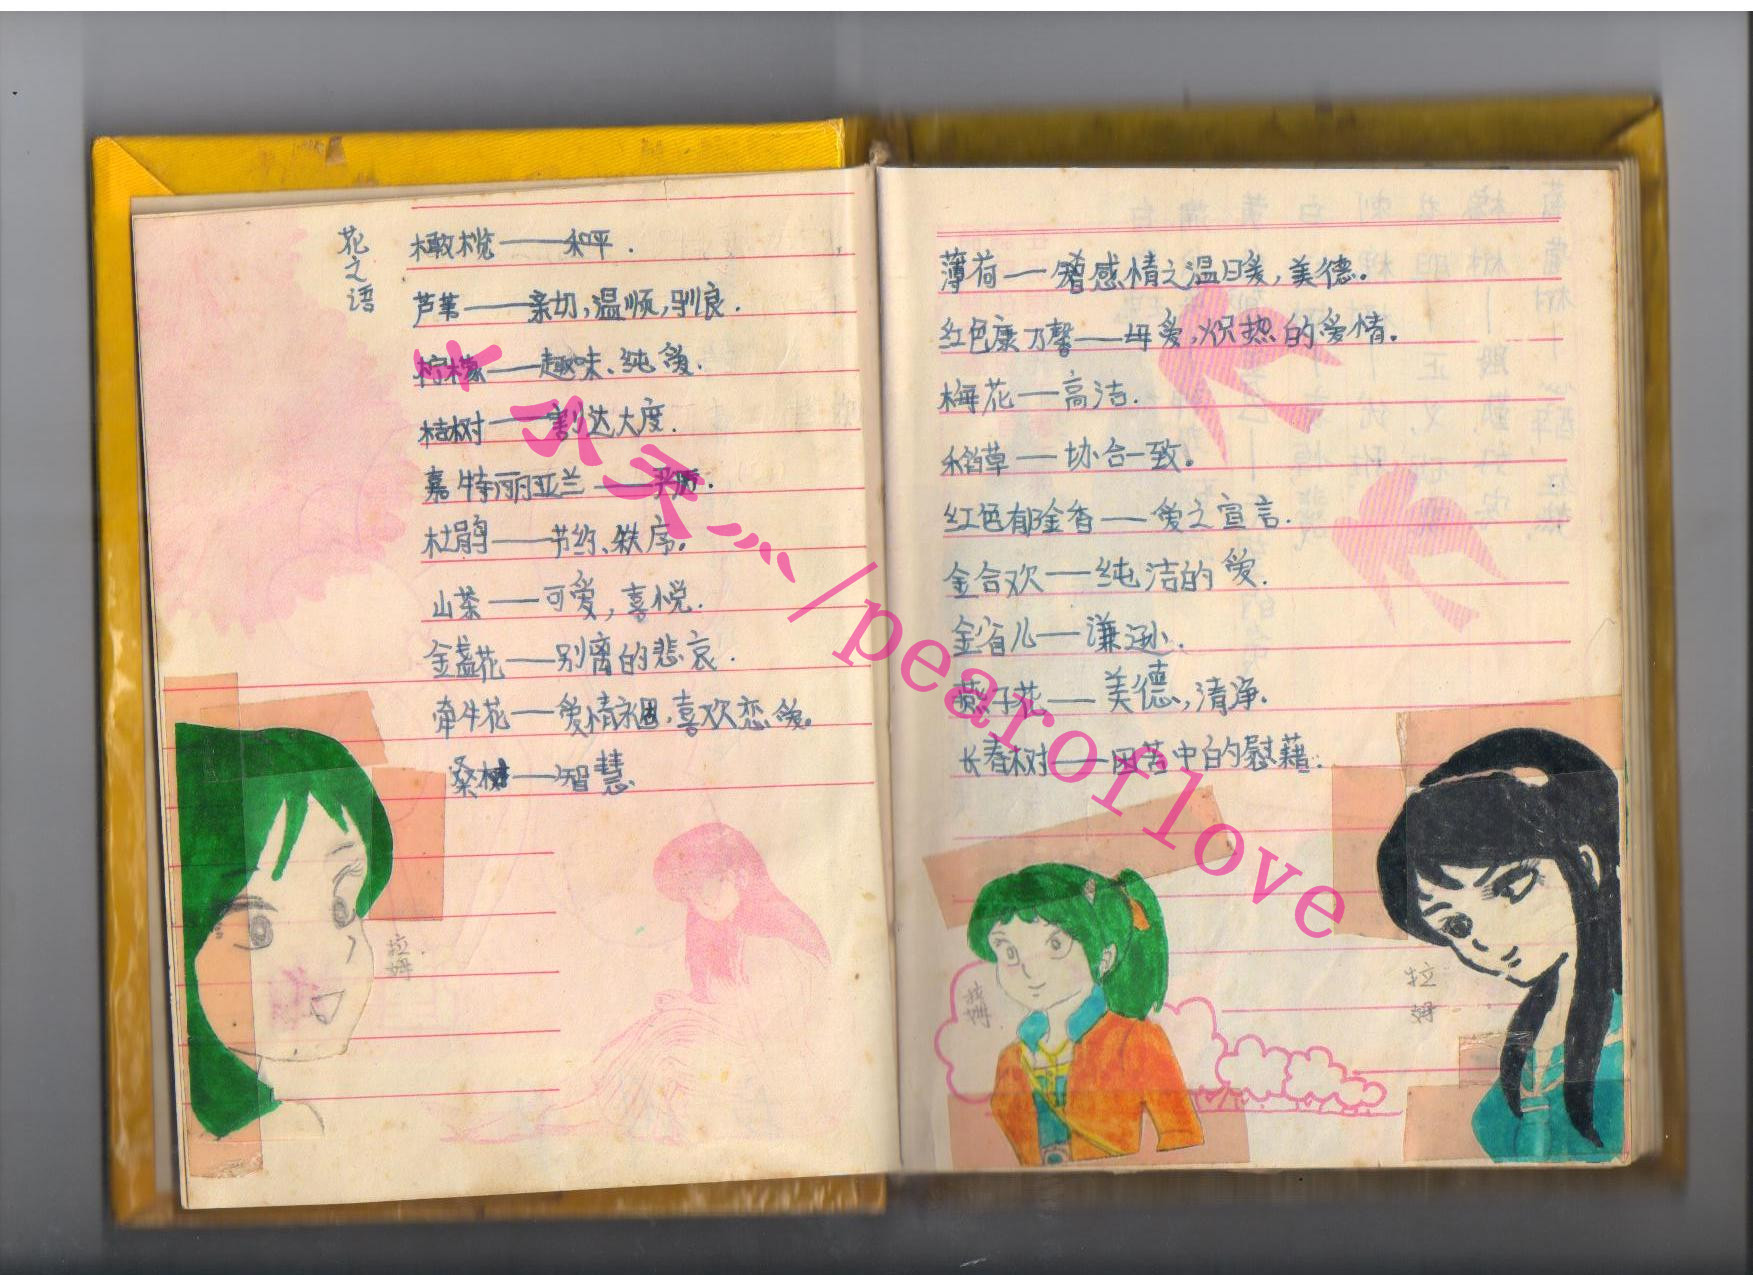 花之语
橄榄——和平.
芦苇——亲切,温顺,驯良.
柠檬——趣味、纯爱.
桔树——豁达大度.
嘉特丽亚兰——
杜鹃——节约、秩序。
山茶——可爱,喜悦.
金盏花——别离的悲哀.
牵牛花——爱情永固,喜欢恋爱。
桑树——智慧
拉姆
薄荷——感情之温暖,美德。
红色康乃馨——母爱,炽热的爱情。
梅花——高洁.
稻草——协合一致。
红色郁金香——爱之宣言.
金合欢——纯洁的爱.
金雀儿——谦逊.
燕子花——美德,清净.
长春树——困苦中的慰藉.
拉姆
拉姆
水天灬/pearoflove